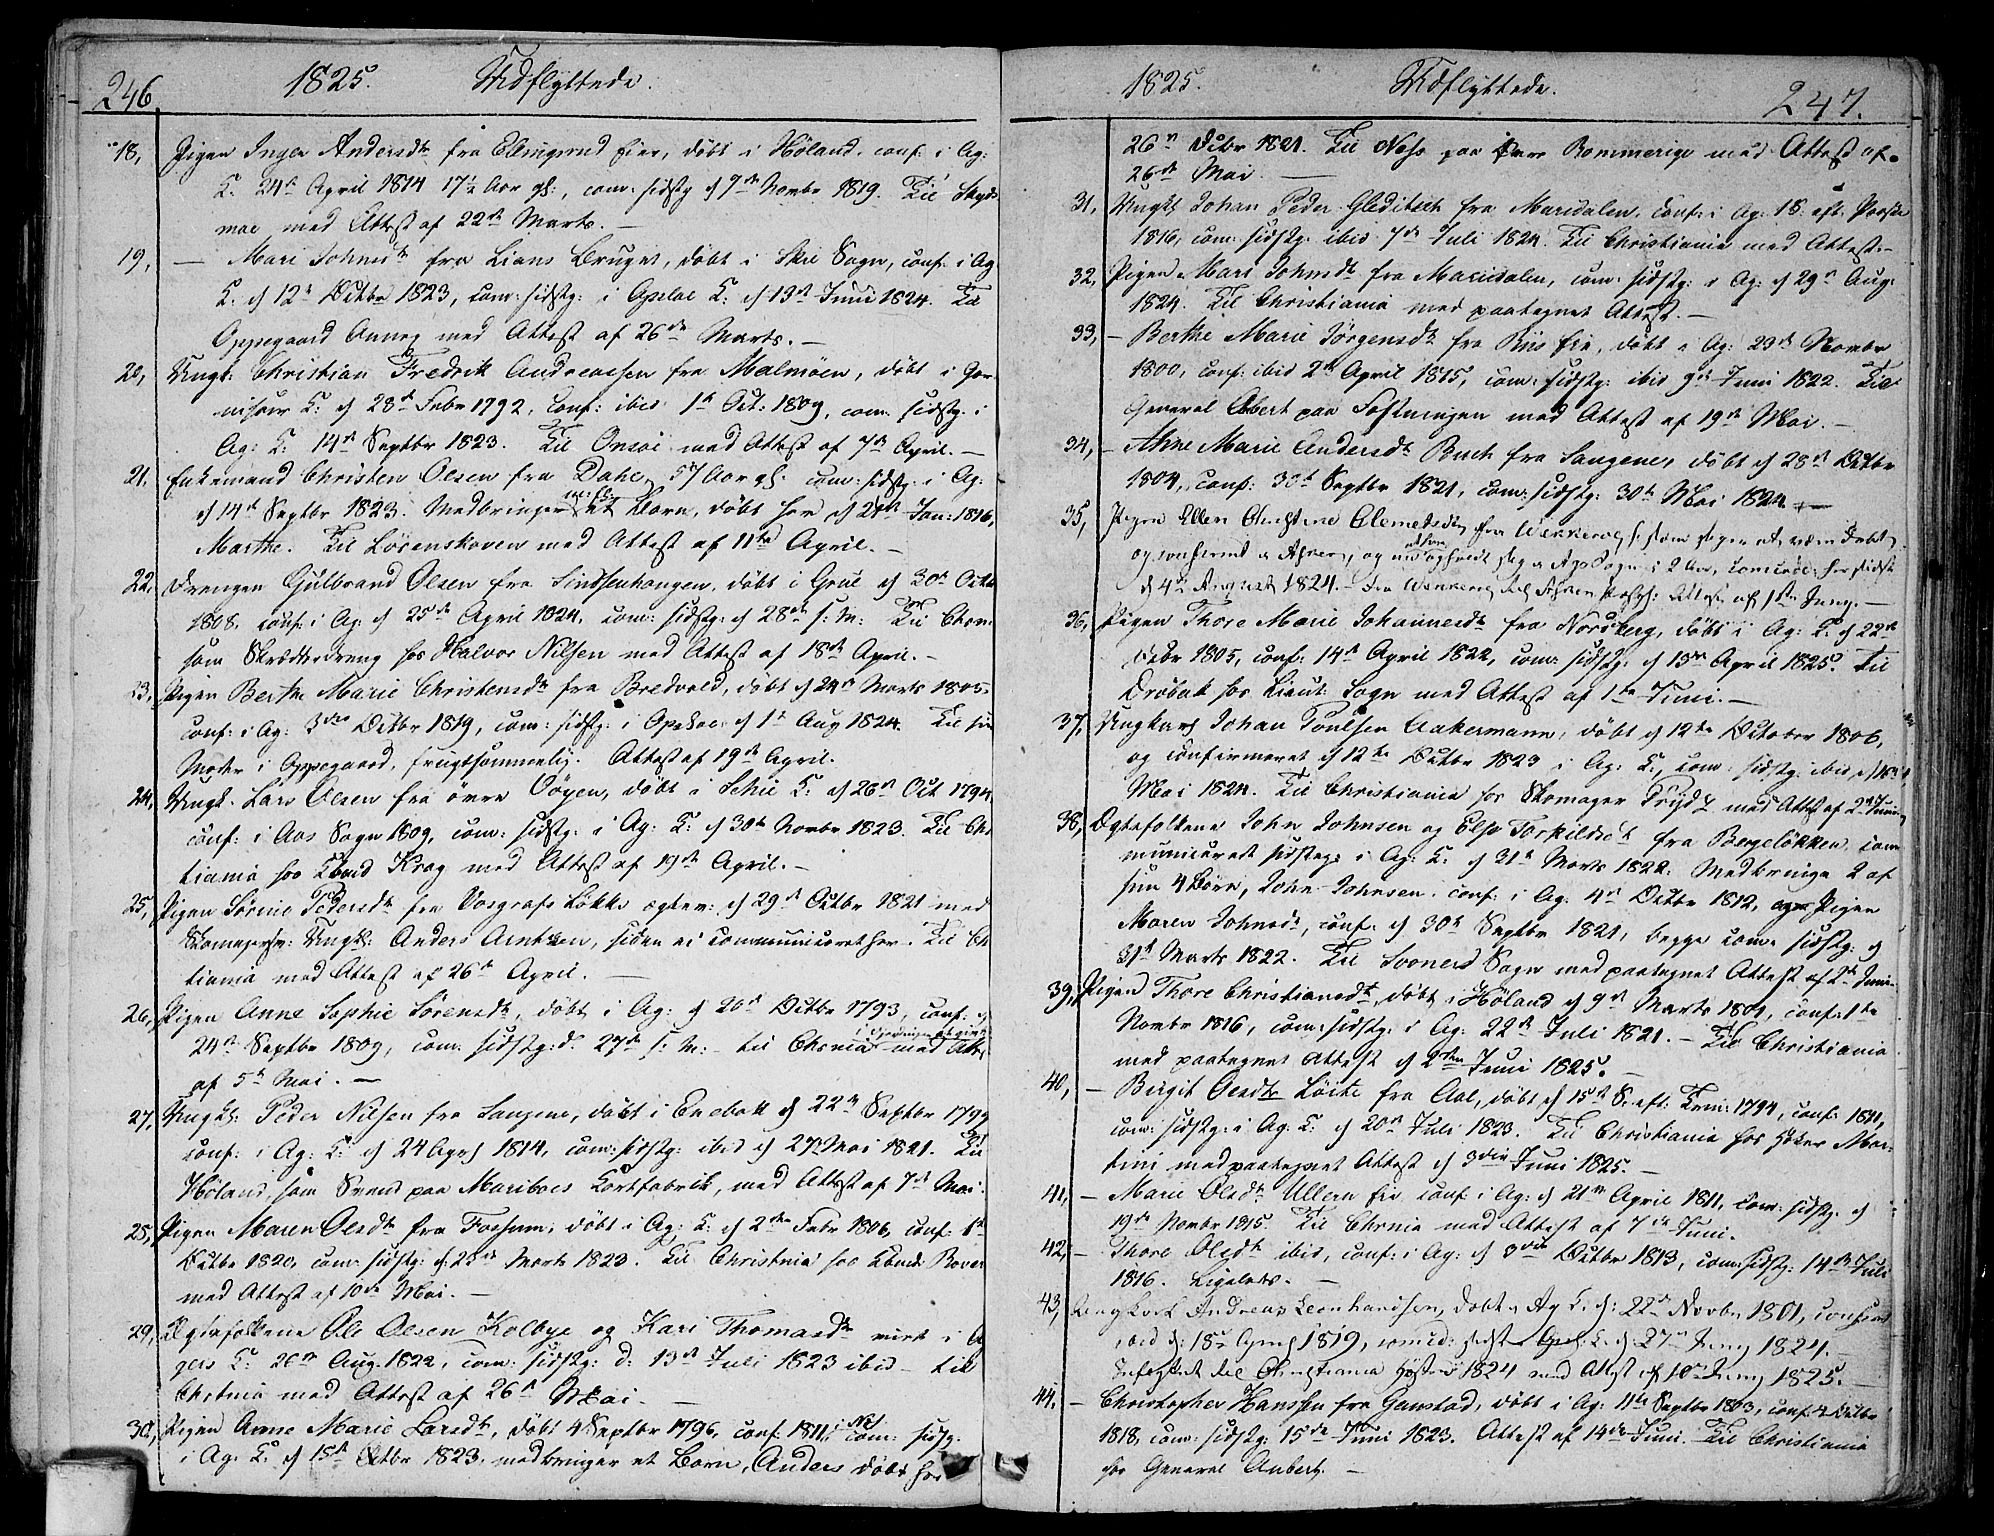 246.
1825. Udflyttede.
18, Pigen Inger Andersdt fra Eie, døbt i Høland, conf: i Ag:
K. 24de April 1814 17½ Aar gl:, com: sidstg d 7de Novbr 1819. Til
moe med Attest af 22de Marts. —
19, — Mari Johnsdt fra Lians Bruget, døbt i Skie Sogn, conf: i Ag
K. d 12te Octbr 1823, com: sidstg: i Opsloe K: d 13de Juni 1824. Til
Oppegaard Annex med Attest af 26de Marts. —
20, Ungk: Christian Fredrik Andreassen fra Malmøen, døbt i Gar-
nisons K: d 28de Febr 1792, conf: ibid 1te Oct: 1809, com: sidstg: i
Ag: K: 14de Septbr 1823. Til Onsøe med Attest af 7de April. —
21. Enkemand Christen Olsen fra Dahl, 57 Aar gl. com: sidstg: i Ag:
d 14de Septbr 1823. Medbringer et Barn, døbt her d 21de Jan: 1816,
Marthe. Til Lørenskoven med Attest af 11te April. —
22, Drengen Gulbrand Olsen fra Sindsenhaugen, døbt i Grue d 30te Octbr
1808, conf: i Ag: d 25de April 1824, com: sidstg: d 28de s: M: Til Chra
som Skrædderdreng hos Halvor Nilsen med Attest af 18de April. —
23. Pigen Berthe Marie Christensdt fra Bredvold, døbt d 24de Marts 1805,
conf: i Ag: 3die Octbr 1819, com: sidstg: i Opsloe d 1te Aug 1824. Til sin
Moder i Oppegaard, frugtsommelig. Attest af 19de April.
24, Ungk. Lars Olsen fra øvre Vøyen, døbt i Schie K: d 26de Oct 1794
conf: i Aas Sogn 1809, com: sidstg: i Ag: K: d 30te Novbr 1823. Til Chri
tiania hos Krog med Attest af 19de April. —
25, Pigen Sørine Pedersdt fra Vosgrafs Løkke ægtev: d 29de Octbr 1821 med
Skomagersv: Ungk: Anders Arntsen, siden ei communiceret her. Til Ch
tiania med Attest af 26de April. —
26, Pigen Anne Sophie Sørensdt, døbt i Ag: d 20de Octbr 1793, conf: d
24de Septbr 1809, com: sidstg: d. 27de s: M: — til Chrnia med Att:
af 5te Mai. —
27, Ungk: Peder Nilsen fra Saugene, døbt i Enebak d 22de Septbr 1799
conf: i Ag: K: d 24 April 1814, com: sidstg: ibid d 27 Mai 1821. Til
Høland, som Svend paa Mariboes Kortfabrik, med Attest af 7de Mai.
25, Pigen Maren Olsdt fra Fossum, døbt i Ag: K: d 2den Febr 1806, conf: 1te
Octbr 1820, com: sidstg: d: 23de Marts 1823. Til Christnia hos
med Attest af 10de Mai. —
29, Ægtefolkene Ole Olsen Kolbye og Kari Thomasdt viet i A
gers K: 26de Aug. 1822, com: sidstg: d: 13de Juli 1823 ibid — til
Chrstnia med Attest af 26de Mai. —
30, Pigen Anne Marie Larsdt, døbt 4 Septbr 1796, conf: 1811, com: sidstg.
i Ag: K: d 15de Octbr 1823, medbringer et Barn, Anders døbt her
1825. Udflyttede. 247.
26de Octbr 1821. Til Næss paa Øvre Rommerige med Attest af
26de Mai. —
31, Ungk: Johan Peder Gleditsch fra Maridalen, conf: i Ag: 18. eft. Paaske
1816, com: sidstg: ibid 4de Juli 1824. Til Christiania med Attest. —
32, Pigen Mari Johnsdt fra Maridalen, com: sidstg: i Ag: d 29de Aug:
1824. Til Christiania med paategnet Attest. —
33, — Berthe Marie Jørgensdt fra Riis Eie, døbt i Ag: 23de Novbr
1800, conf: ibid 2de April 1815, com: sidstg: ibid 9de Juni 1822. Til
General Abert paa Fæstningen med Attest af 19de Mai. —
34, — Anne Marie Andersdt Buch fra Saugene, døbt d 28de Octbr
1804, conf: 30te Septbr 1821, com: sidstg: 30te Mai 1824. —
35, Pigen Ellen Christine Clemedsdt fra Wækkerøe,
d 4de August 1824. — Attest af 1ste Juny. —
36, Pigen Thore Marie Johannesdt fra Nordberg, døbt i Ag: K: d 22de
Octbr 1805, conf: 14de April 1822, com: sidstg: d 15de April 1825. Til
Drøbak hos Lieut: Sogn med Attest af 1te Juni. —
37, Ungkarl Johan Poulsen Aakermann, døbt d 12te October 1806,
og confirmeret d 12te Octbr 1823 i Ag: K:, com: sidstg: ibid d 16de
Mai 1824. Til Christiania hos Skomager Fryd med Attest af 2de Juni
38, Ægtefolkene John Johnsen og Else Torkildsdt fra Bergsløkken, com
municeret sidstg: i Ag: K: d 31te Marts 1822. Medbringe 2 af
sine 4 Børn, John Johnsen. conf: i Ag: 4de Octbr 1812, og Pigen
Maren Johnsdt, conf: d 30te Septbr 1821, begge com: sidstg: d
31te Marts 1822. Til Sooners Sogn med paategnet Attest af 2de Juni.
39, Pigen Thore Christiansdt, døbt i Høland d 9de Marts 1801, conf: 1te
Novbr 1816, com: sidstg: i Ag: 22de Juli 1821. — Til Christiania
med paategnet Attest d 2den Juni 1825. —
40, — Birgit Olsdt Løite fra Aal, døbt d 15de S: eft: Trin: 1794, conf: 1811,
com: sidstg: i Ag: K: d 20de Juli 1823. Til Christiania hos Høker Mar-
tini med paategnet Attest d 3die Juni 1825. —
41, — Marie Olsdt Ullern Eie conf: i Ag: d 21de April 1811, com: sidstg: d
19de Novbr 1815. Til Chrnia med Attest af 7de Juni.
42, — Thore Olsdt ibid, conf: i Ag: d 3die Octbr 1813, com: sidstg: 14de Juli
1816. Ligeledes. —
43, Ungkarl Andreas Leonhardsen, døbt i Ag K: d: 22de Novbr 1801, confirm
ibid d: 18de April 1819, comm: sidst Ag. K: d: 27de Juny 1824. —
Udflyttet til Christiania Høsten 1824 med Attest af 10de Juny 1825. —
44. — Christopher Hanssen fra Grimstad, døbt i Ag: 11te Septbr 1803, conf: 4 Octbr
1818, com: sidstg: 15de Juni 1823. Attest af 14de Juni. Til Christiania
hos General Aubert. —